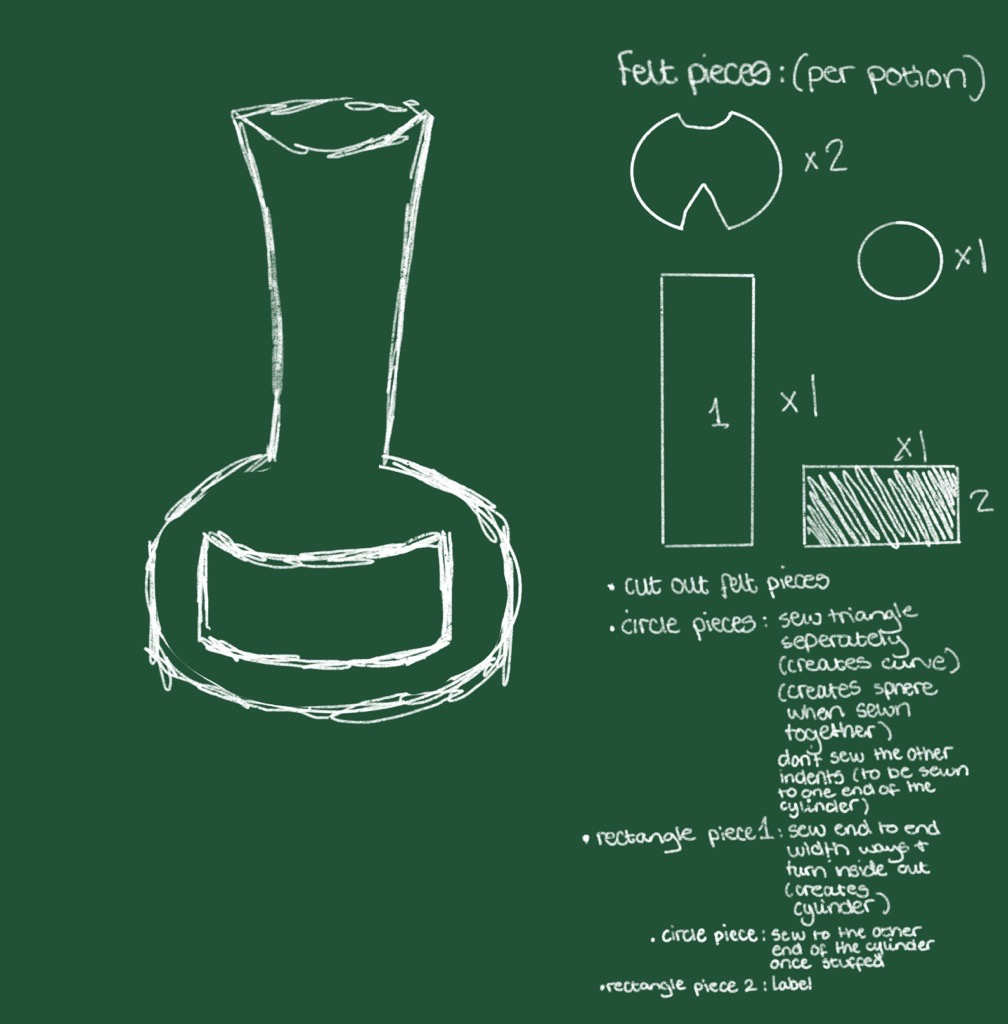 Felt pieces: (per potion)
x2
x1
1
x1
x1
2
• cut out felt pieces
• circle pieces: sew triangle
seperately
(creates curve)
(creates sphere
when sewn
together)
don't sew the other
indents (to be sewn
to one end of the
cylinder)
• rectangle piece 1: sew end to end
width ways +
turn inside out
(creates
cylinder)
• circle piece: sew to the other
end of the cylinder
once stuffed
• rectangle piece 2: label